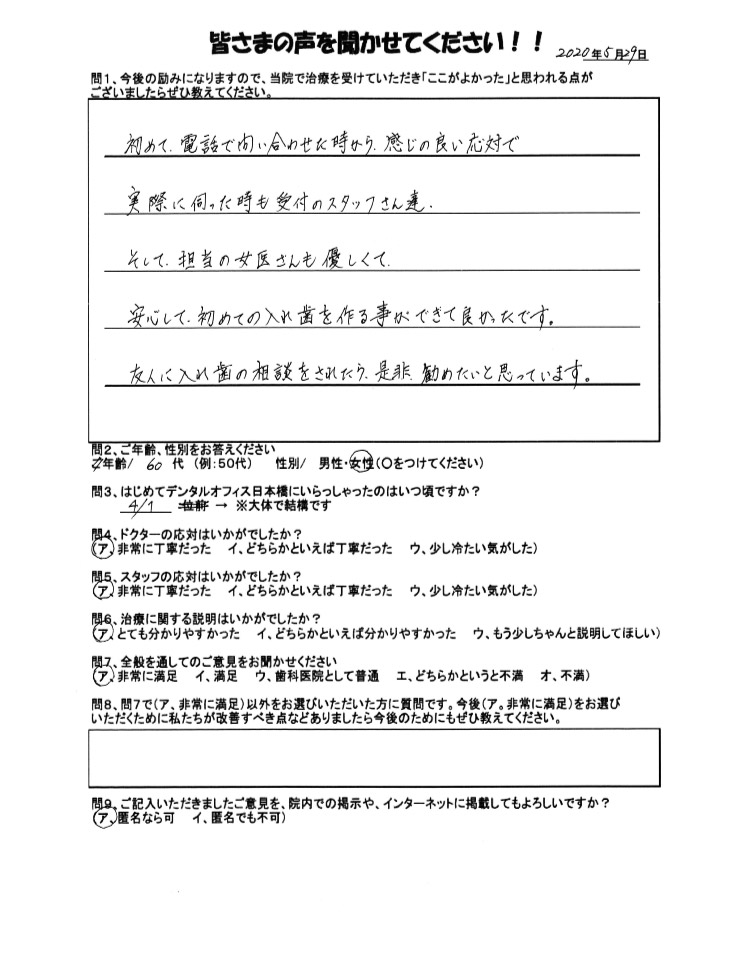 皆さまの声を聞かせてください！！
2020年5月29日
問1、今後の励みになりますので、当院で治療を受けていただき「ここがよかった」と思われる点が
ございましたらぜひ教えてください。
初めて、電話で問い合わせた時から、感じの良い応対で
実際に伺った時も受付のスタッフさん達、
そして、担当の女医さんも優しくて、
安心して、初めての入れ歯を作る事ができて良かったです。
友人に入れ歯の相談をされたら、是非、勧めたいと思っています。
問2、ご年齢、性別をお答えください
ア年齢/ 60 代 （例：50代） 性別/ 男性・女性（○をつけてください）
問3、はじめてデンタルオフィス日本橋にいらっしゃったのはいつ頃ですか？
4/1 → ※大体で結構です
問4、ドクターの応対はいかがでしたか？
（ア、非常に丁寧だった イ、どちらかといえば丁寧だった ウ、少し冷たい気がした）
問5、スタッフの応対はいかがでしたか？
（ア、非常に丁寧だった イ、どちらかといえば丁寧だった ウ、少し冷たい気がした）
問6、治療に関する説明はいかがでしたか？
（ア、とても分かりやすかった イ、どちらかといえば分かりやすかった ウ、もう少しちゃんと説明してほしい）
問7、全般を通してのご意見をお聞かせください
（ア、非常に満足 イ、満足 ウ、歯科医院として普通 エ、どちらかというと不満 オ、不満）
問8、問7で（ア、非常に満足）以外をお選びいただいた方に質問です。今後（ア。非常に満足）をお選び
いただくために私たちが改善すべき点などありましたら今後のためにもぜひ教えてください。
問9、ご記入いただきましたご意見を、院内での掲示や、インターネットに掲載してもよろしいですか？
（ア、匿名なら可 イ、匿名でも不可）